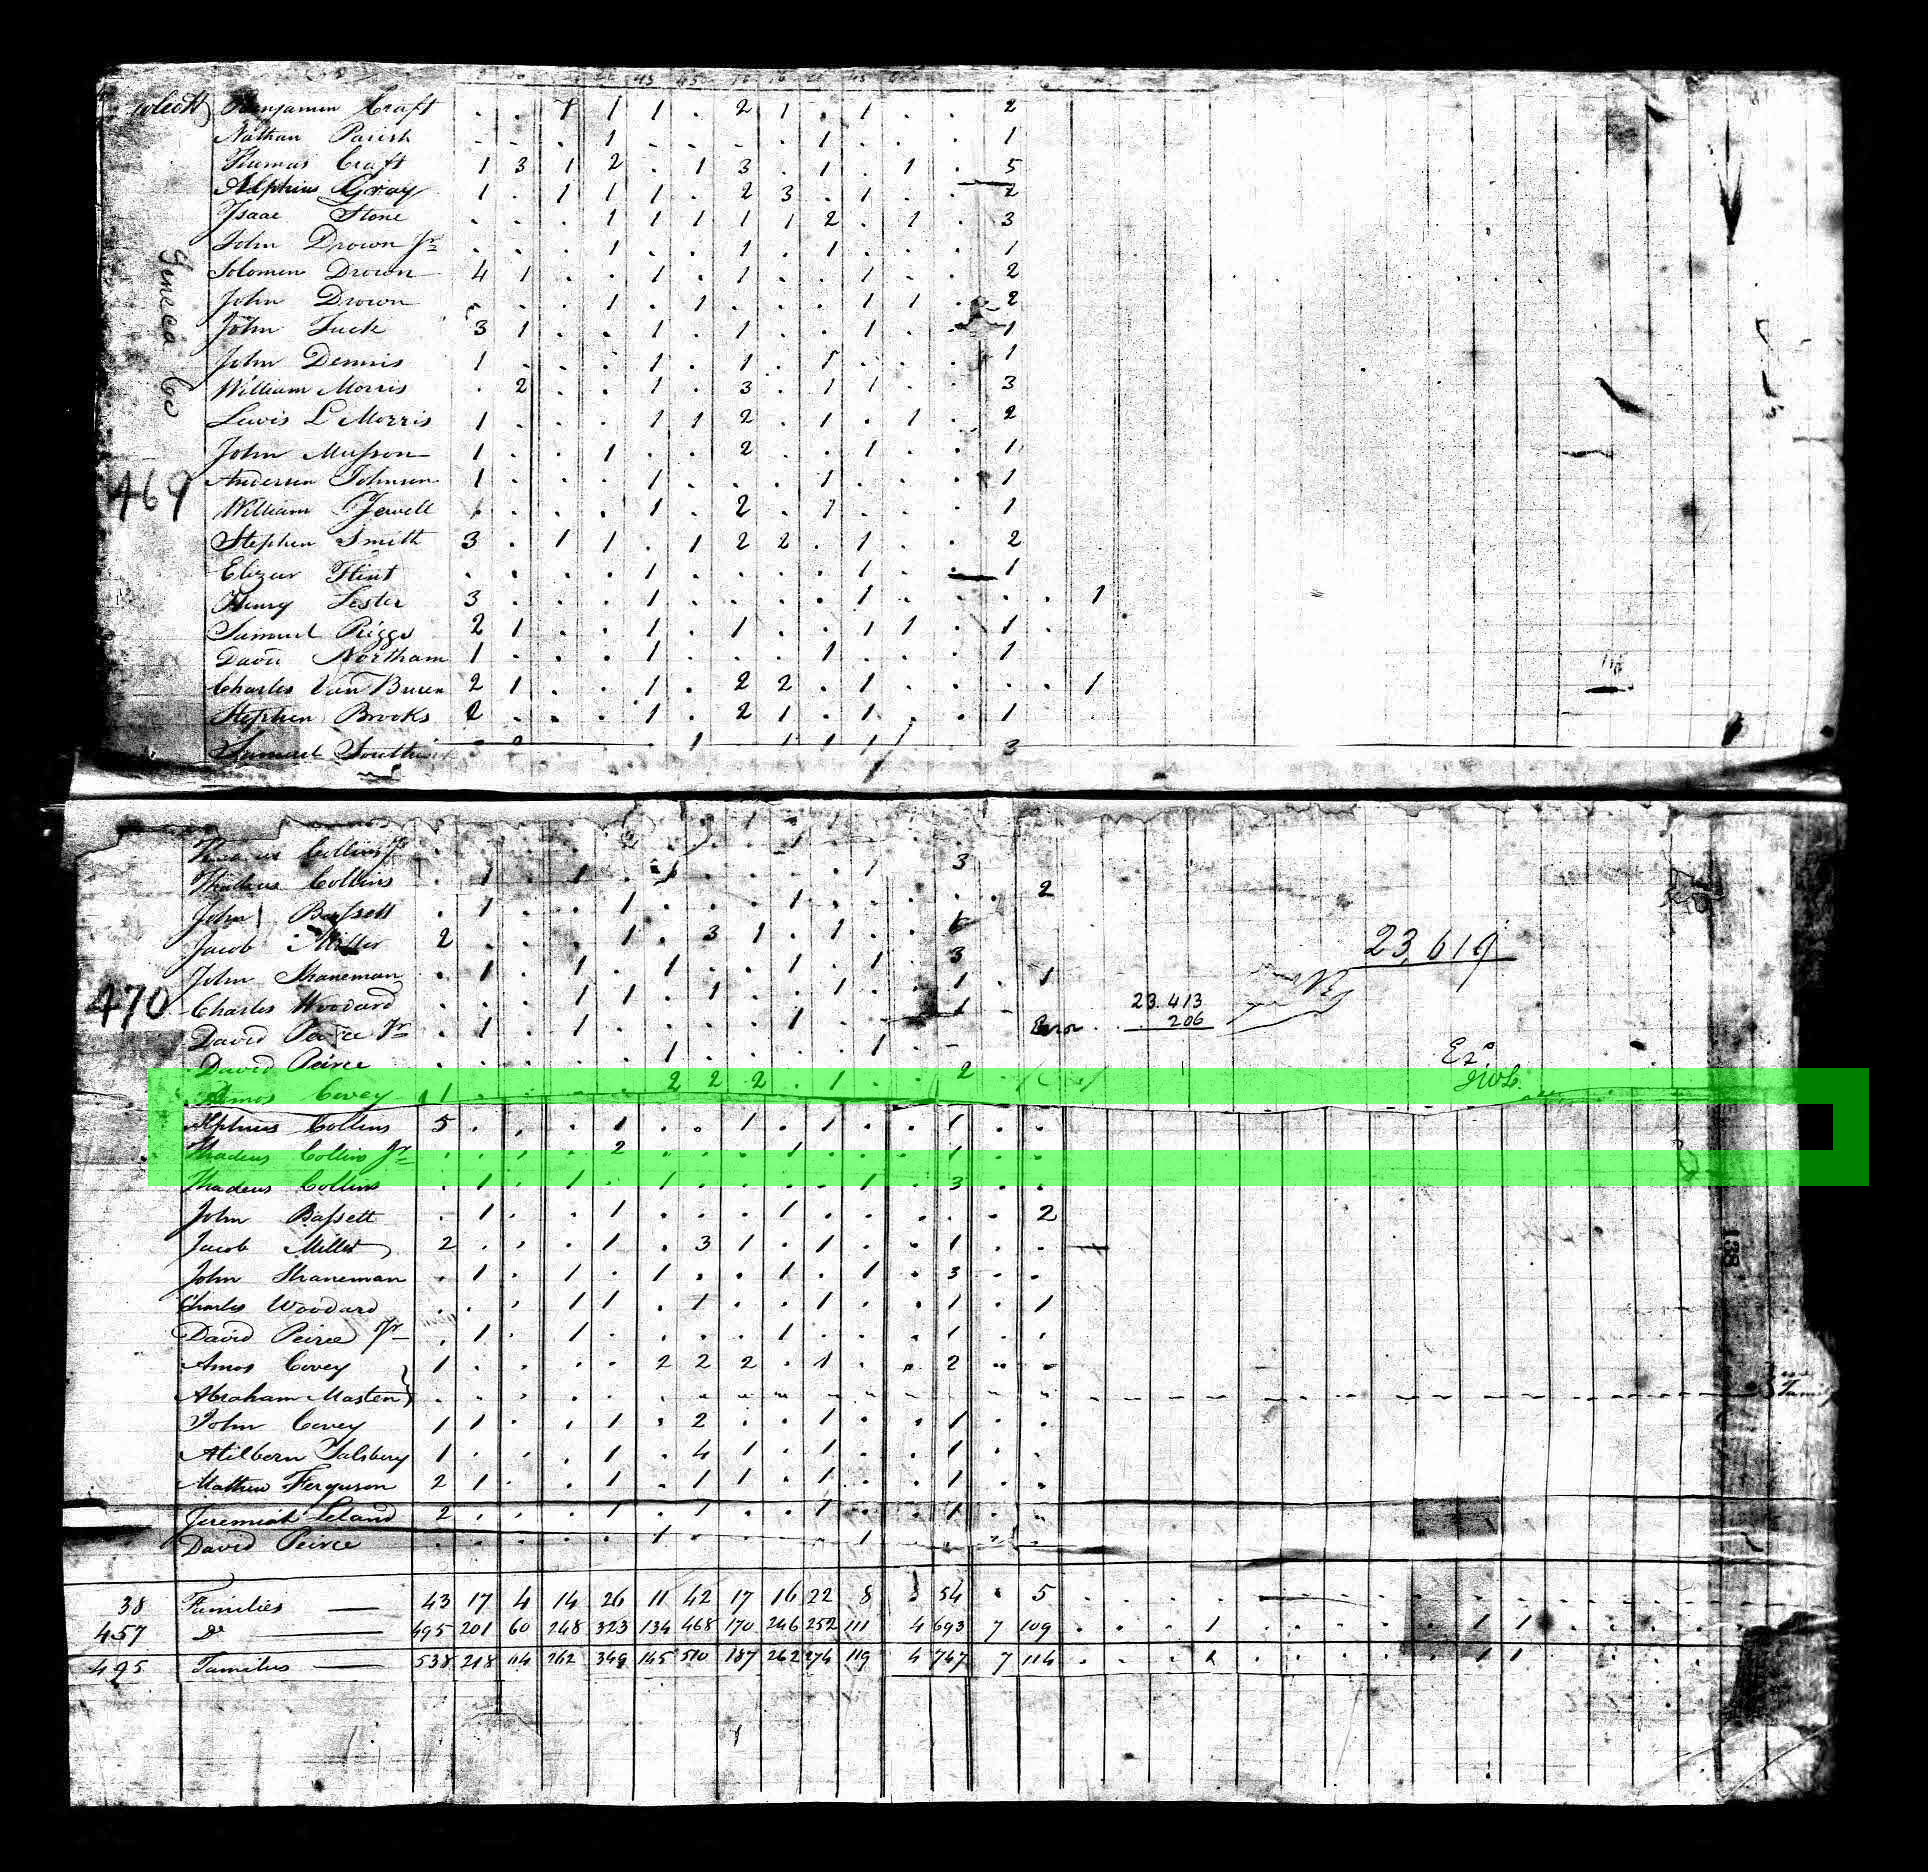 Wolcott Benjamin Craft . . 1 1 1 . 2 1 . 1 . . 2
Nathan Parish . . . 1 . . . . 1 . . . 1
Thomas Craft 1 3 1 2 . 1 3 . 1 . 1 . 5
Alphius Gray 1 . 1 1 1 . 2 3 . 1 . . 2
Isaac Stone . . . 1 1 1 1 1 2 . 1 . 3
John Drown Jr . . . 1 . . 1 . 1 . . . 1
Solomon Drown 4 1 . . 1 . 1 . . 1 . . 2
John Drown . . . 1 . 1 . . . 1 1 . 2
John Tuck 3 1 . . 1 . 1 . . 1 . . 1
John Dennis 1 . . . 1 . 1 . 1 . . . 1
William Morris . 2 . . 1 . 3 . 1 1 . . 3
Lewis L Morris 1 . . . 1 1 2 . 1 . 1 . 2
John Musson 1 . . 1 . . 2 . . 1 . . 1
Anderson Johnson 1 . . . 1 . . . 1 . . . 1
William Jewell 1 . . . 1 . 2 . 1 . . . 1
Stephen Smith 3 . 1 1 . 1 2 2 . 1 . . 2
Elizur Flint . . . . 1 . . . . 1 . . 1
Henry Lester 3 . . . 1 . . . . 1 . . . . 1
Samuel Riggs 2 1 . . 1 . 1 . . 1 1 . 1 .
David Northam 1 . . . 1 . . . 1 . . . 1
Charles Van Buren 2 1 . . 1 . 2 2 . 1 . . . . 1
Stephen Brooks 2 . . . 1 . 2 1 . 1 . . 1
Samuel 3
Seneca Co
469
Collins Jr
Thadeus Collins . 1 . 1 . 1 . . . . 1 . 3
John Bassett . 1 . . 1 . . . 1 . . . . . 2
Jacob Miller 2 . . . 1 . 3 1 . 1 . . 1
John Shaneman . 1 . 1 . 1 . . 1 . 1 . 3
Charles Woodard . . . 1 1 . 1 . . 1 . . 1 . 1
David Peirce Jr . 1 . 1 . . . . 1 . . . 1
David Peirce . . . . . 1 . . . . 1 .
Amos Covey 1 . . . . 2 2 2 . 1 . . 2
23,619
23.413
Error 206
470
Alphius Collins 5 . . . 1 . . 1 . 1 . . 1 . .
Thadeus Collins Jr . . . . 2 . . . 1 . . . 1 . .
Thadeus Collins . 1 . 1 . 1 . . . . 1 . 3 . .
John Bassett . 1 . . 1 . . . 1 . . . . . 2
Jacob Miller 2 . . . 1 . 3 1 . 1 . . 1 . .
John Shaneman . 1 . 1 . 1 . . 1 . 1 . 3 . .
Charles Woodard . . . 1 1 . 1 . . 1 . . 1 . 1
David Peirce Jr . 1 . 1 . . . . 1 . . . 1 . .
Amos Covey 1 . . . . 2 2 2 . 1 . . 2 . .
Abraham Masten
John Covey 1 1 . . 1 . 2 . . 1 . . 1 . .
Milbern Salsbury 1 . . . 1 . 4 1 . 1 . . 1 . .
Mathew Ferguson 2 1 . . 1 . 1 1 . 1 . . 1 . .
Jeremiah Leland 2 . . . 1 . 1 . . 1 . . 1 . .
David Peirce . . . . . 1 . . . . 1
138
38 Families 43 17 4 14 26 11 42 17 16 22 8 . 54 . 5
457 Do 495 201 60 248 323 134 468 170 246 252 111 4 693 7 109 . . . 1 . . . . . 1 1
495 Families 538 218 64 262 349 145 510 187 262 274 119 4 747 7 114